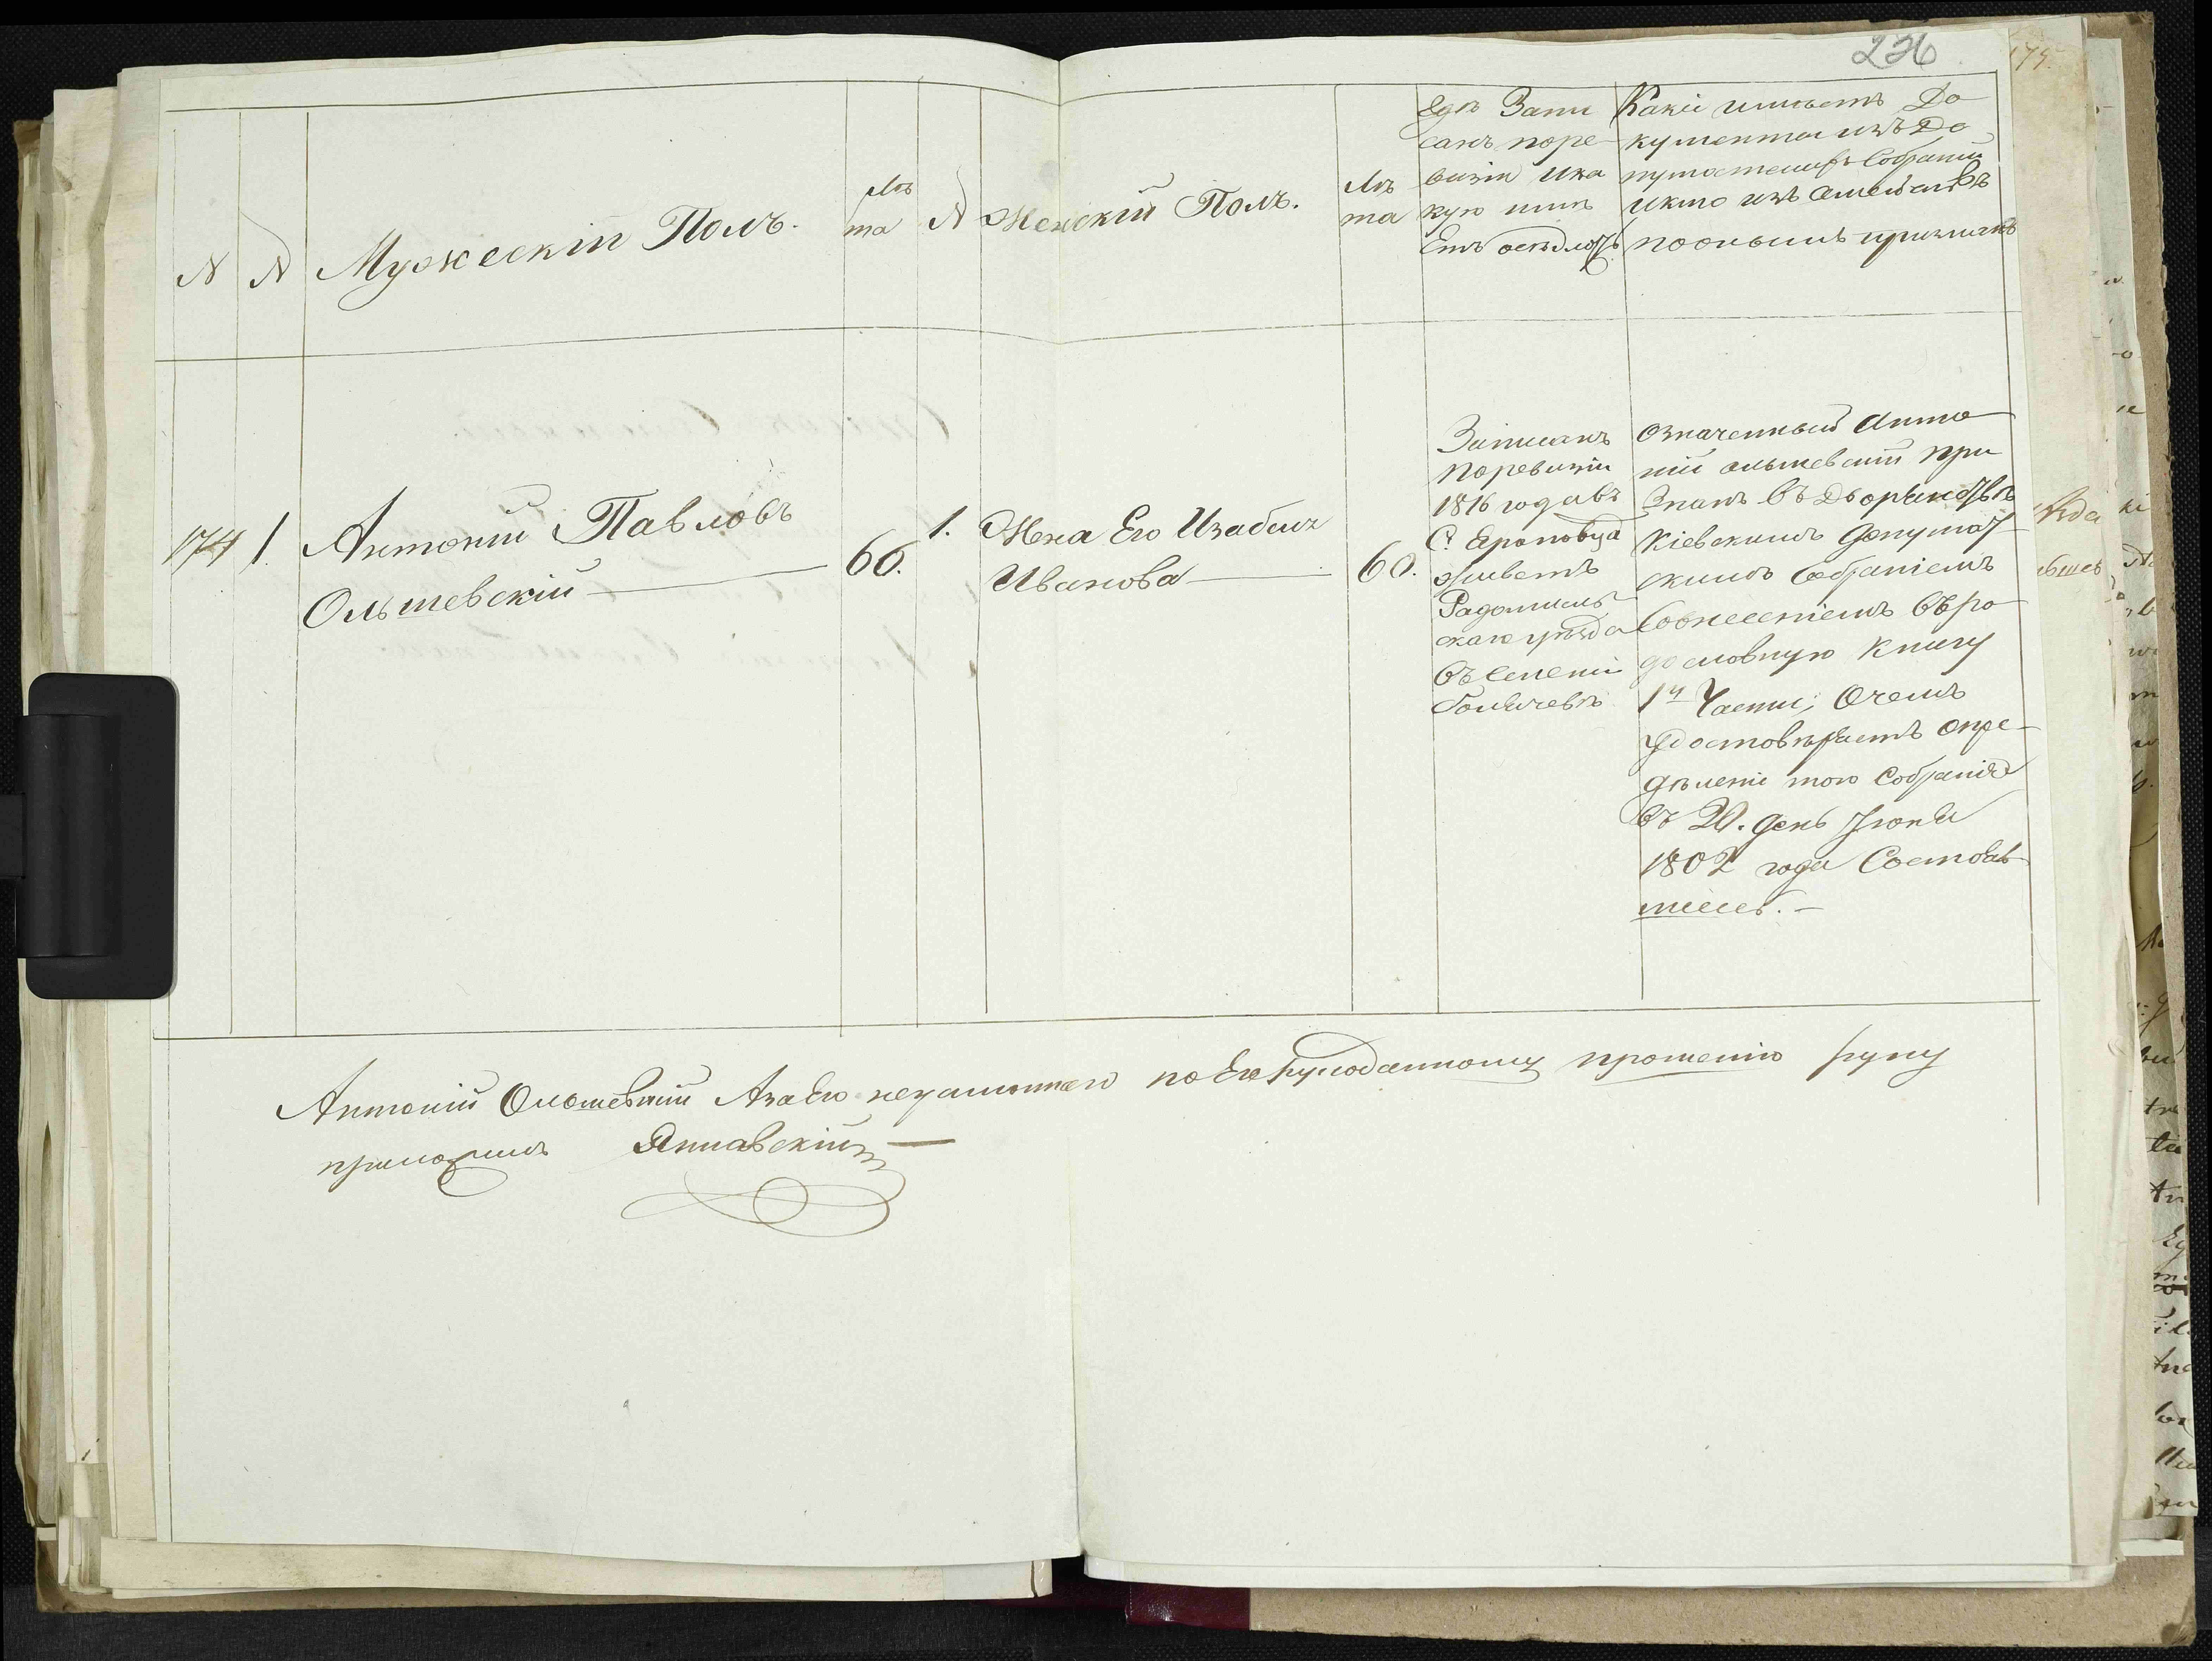 236
175.
N
N
Мужескiй Полъ.
Лѣ
та
N
Женскiй Полъ.
Лѣ
та
Гдѣ Запи
санъ поре-
визiи ика
кую имѣ
Етъ оседлость
Какiи имѣетъ До
кументы изъ До
путатскаго Собранiя
икто изъ Семействъ
поонымъ признанъ
174
1.
Антонiй Павловъ
Ольшевскiй
66.
1.
Жена Его Изабелла
Иванова
60.
Записанъ
Поревизiи
1816 годавъ
С.
живетъ
Радомысль
скаго уѣзда
въ Селенiи
означенный Анто
нiй ольшевскiй при
Знанъ въ Дворянствѣ
Кiевскимъ Депутат
скимъ Собранiемъ
Совнесенiемъ въро
дословную Книгу
1й Части, Очемъ
удостовѣряетъ опре-
дѣленiе того Собранiя
въ 20. день Iюня
1802 года Состояв
шееся. -
Антонiй Ольшевскiй Азаего неграмотнаго по Его рукоданному прошенiю руку
приложилъ